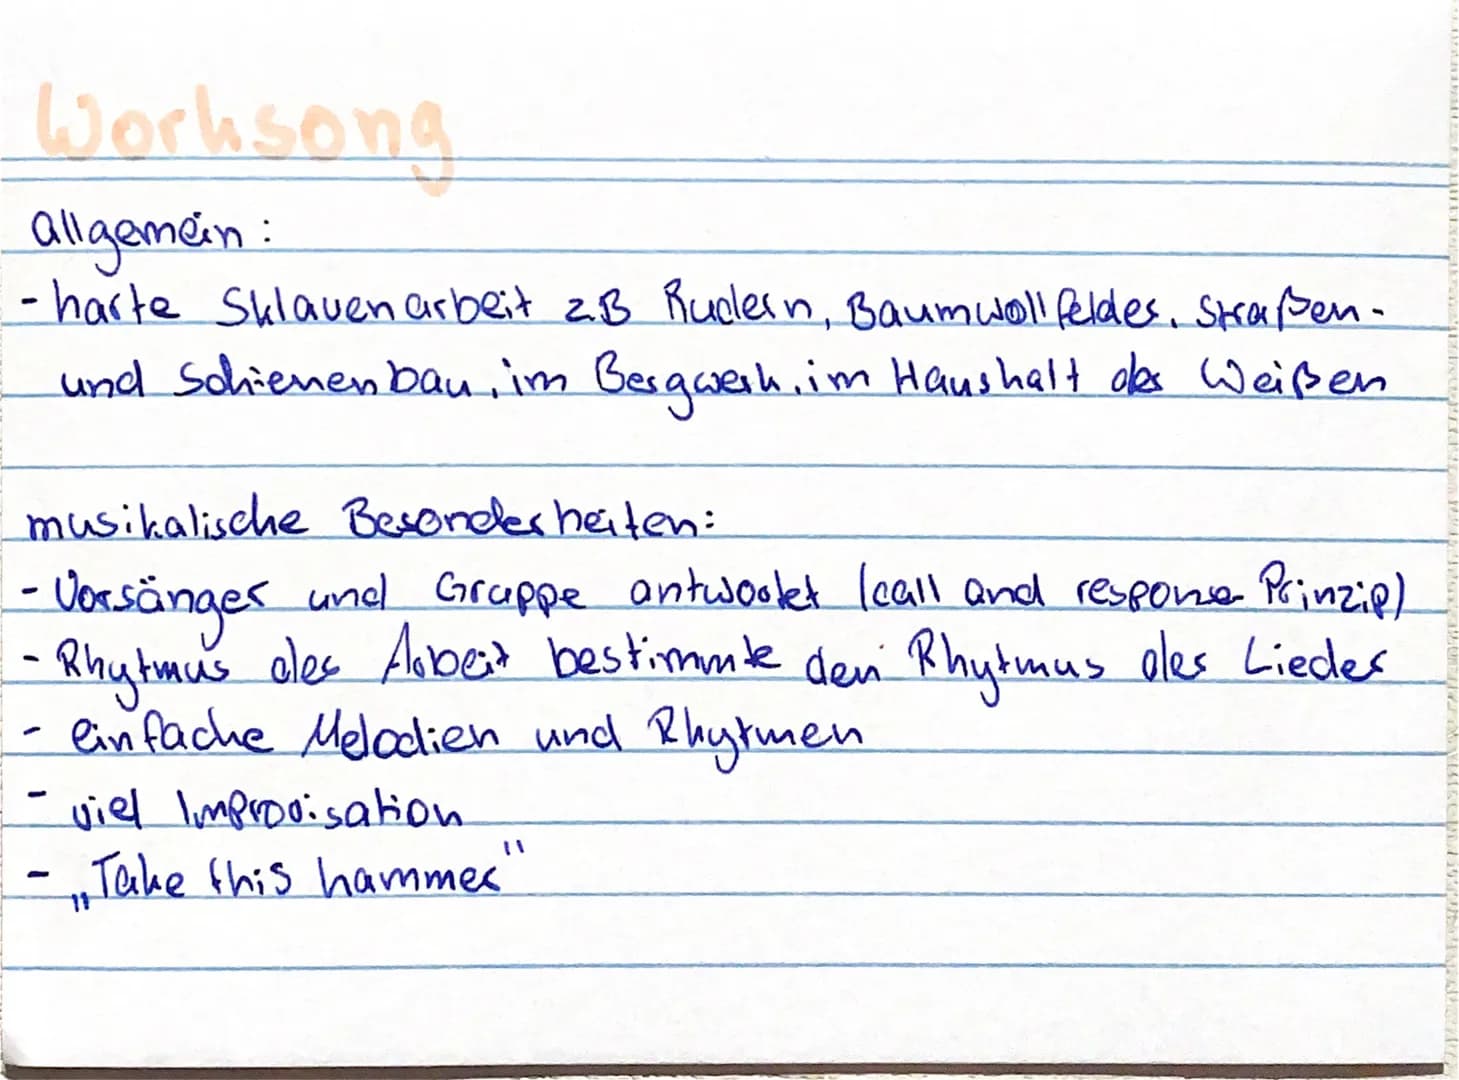 Worksong
allgemein:
- harte Sklavenarbeit zB Rudern, Baumwollfelder, Straßen-
und Schienenbau, im Bergwerk, im Haushalt der Weißen
musikalische Besonderheiten:
- Vorsänger und Gruppe antwortet (call and response Prinzip)
- Rhytmus der Arbeit bestimmte den Rhytmus der Lieder
- einfache Melodien und Rhytmen
- viel Improvisation
- „Take this hammer"